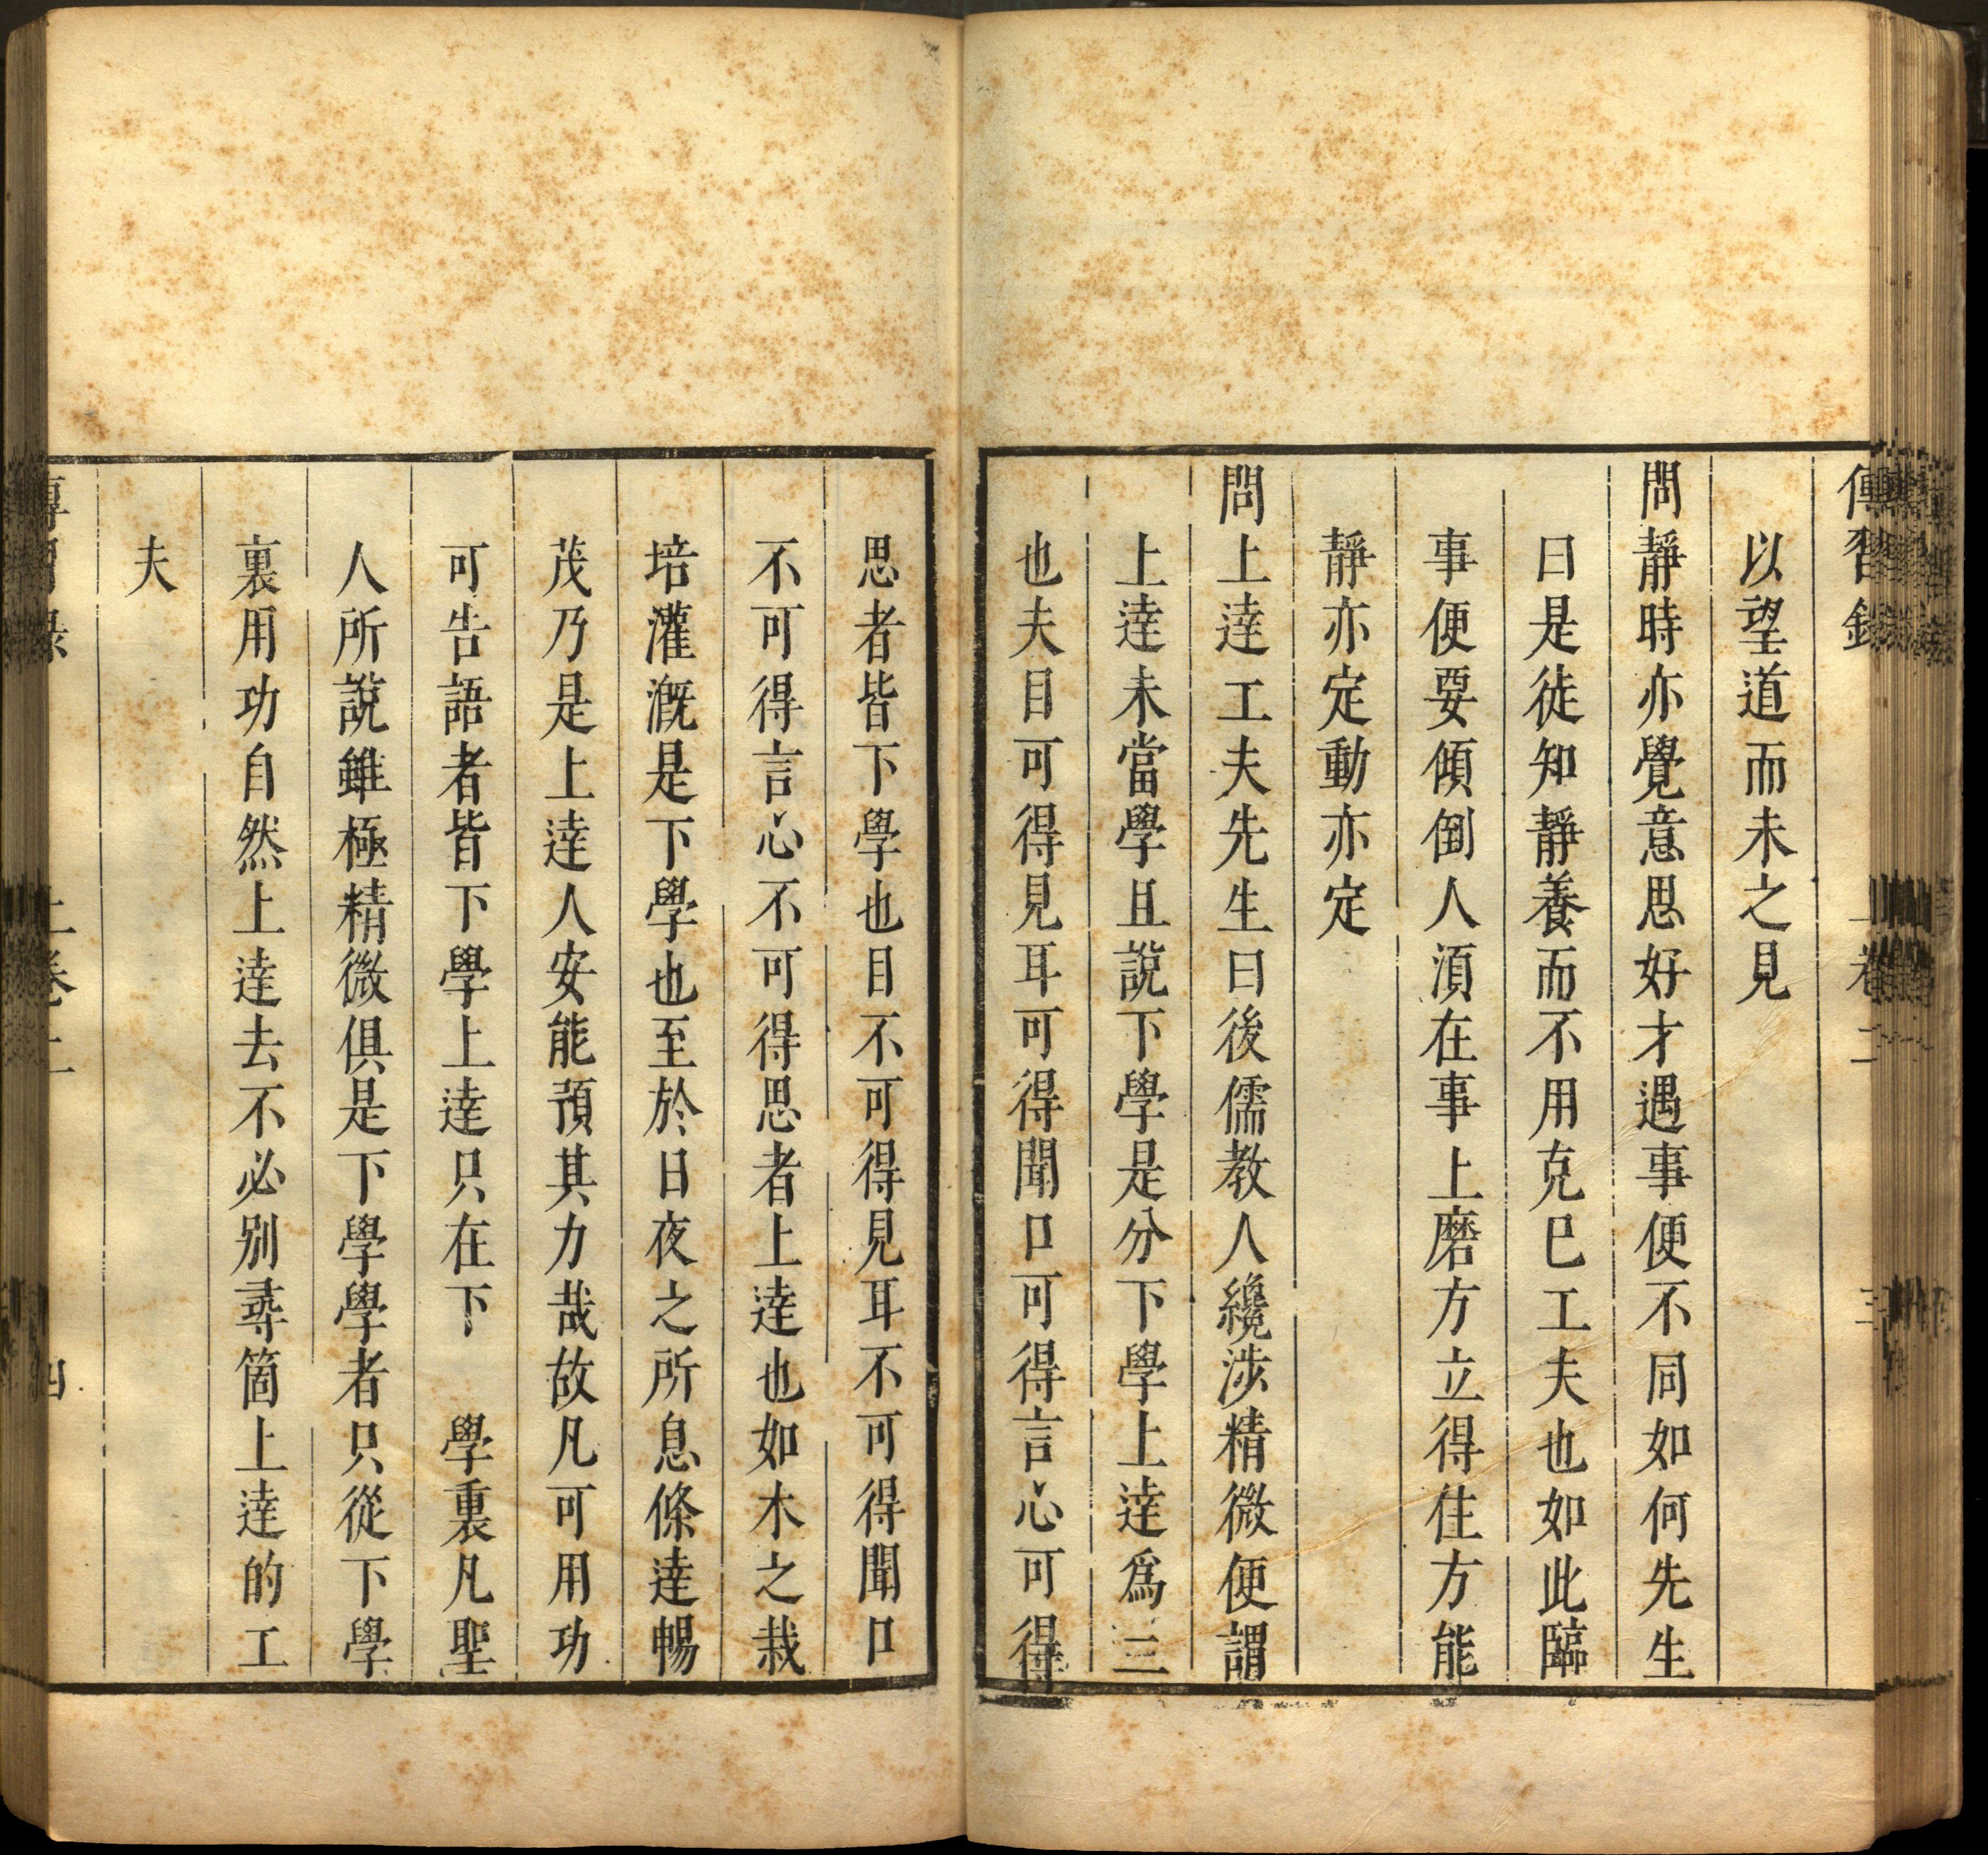 傳習錄 上卷二 三
以望道而未之見
問靜時亦覺意思好才遇事便不同如何先生
曰是徒知靜養而不用克巳工夫也如此臨
事便要傾倒人須在事上磨方立得住方能
靜亦定動亦定
問上達工夫先生曰後儒教人纔涉精微便謂
上達未當學且說下學是分下學上達爲二
也夫目可得見耳可得聞口可得言心可得
思者皆下學也目不可得見耳不可得聞口
不可得言心不可得思者上達也如木之栽
培灌漑是下學也至於日夜之所息條達暢
茂乃是上達人安能預其力哉故凡可用功
可告語者皆下學上達只在下 學裏凡聖
人所說雖極精微俱是下學學者只從下學
裏用功自然上達去不必别尋箇上達的工
夫
傳習錄 上卷二 四